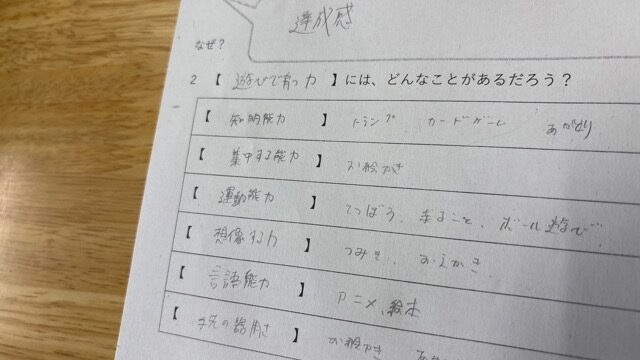 達成感
なぜ？
2 【 遊びで育つ力 】には、どんなことがあるだろう？
【 知的能力 】 トランプ カードゲーム
【 集中する能力 】 お絵かき
【 運動能力 】 てつぼう、まるごと、ボール遊び
【 想像する力 】 つみき、おえかき
【 言語能力 】 アニメ、絵本
【 手先の器用さ 】 お絵かき